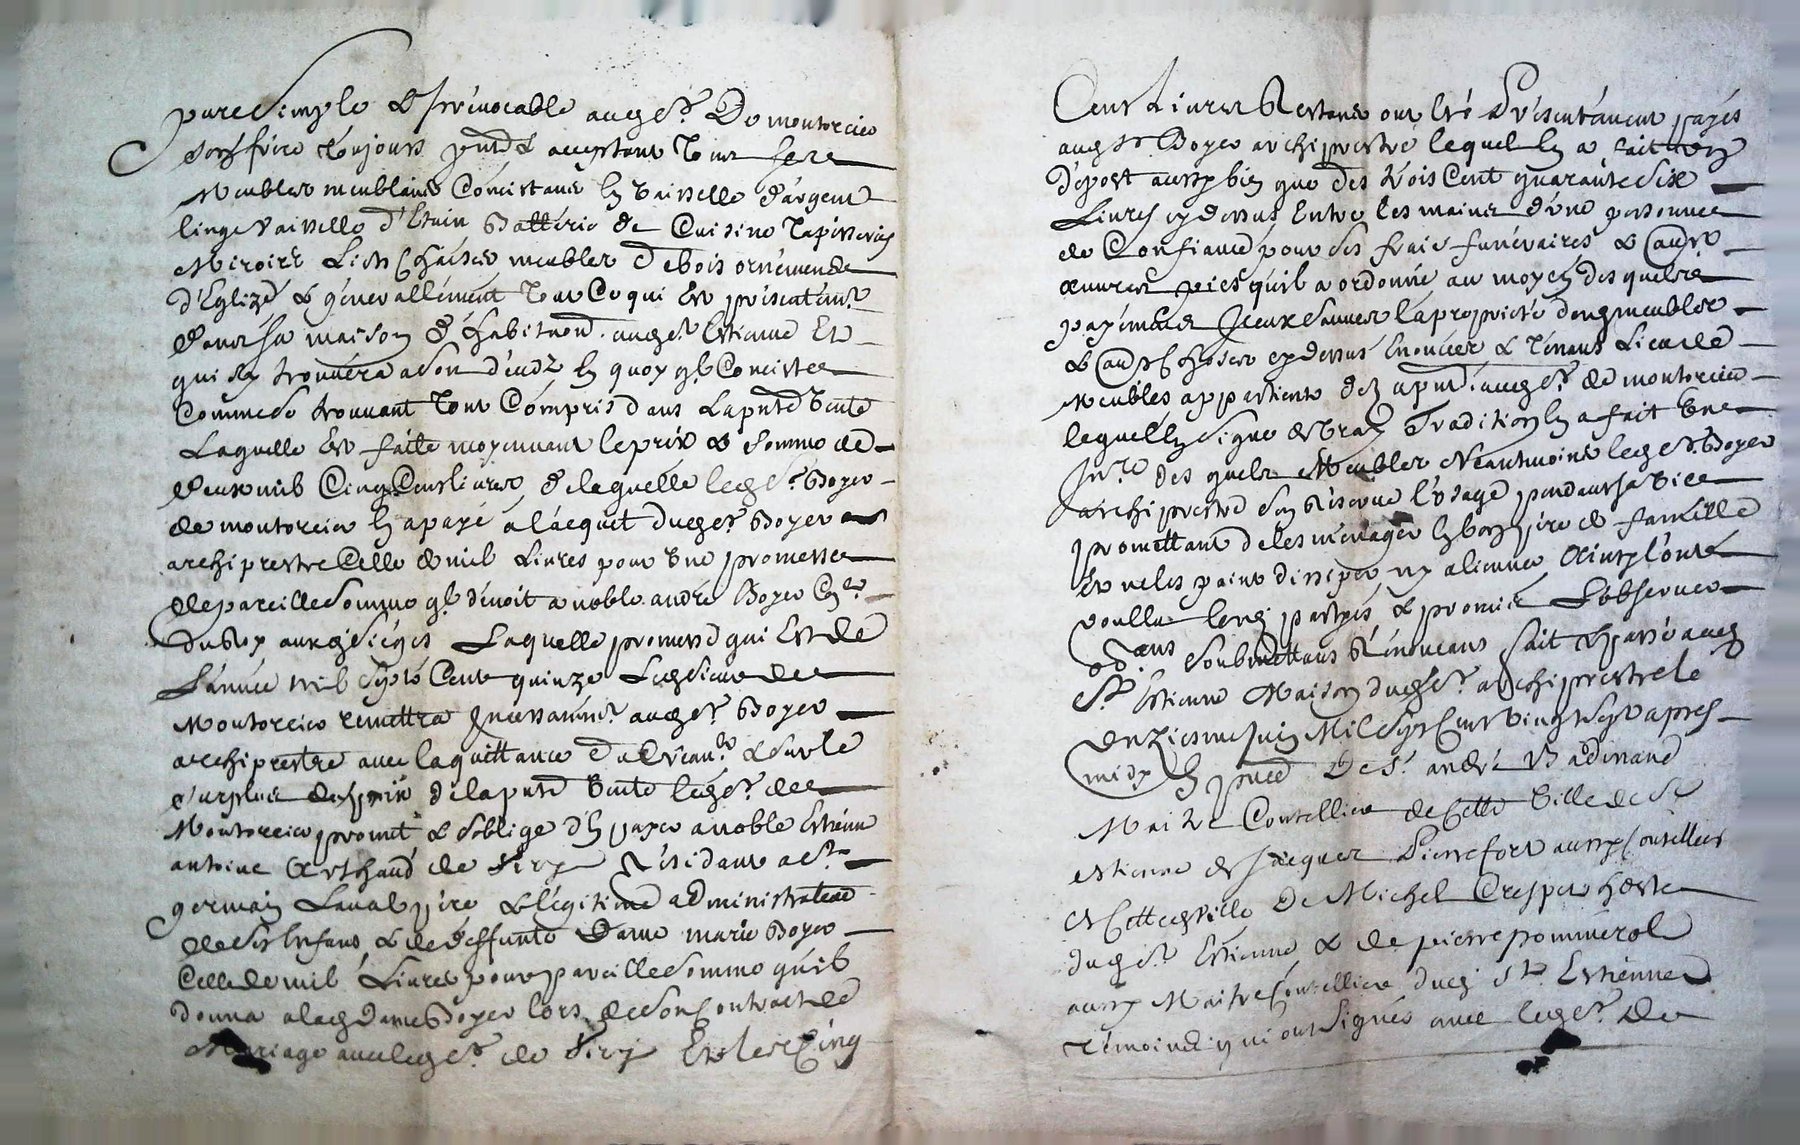 pure simple & Irrévocable audt Sr. De montorcier
son frère toujours pnt & acceptant tous ses
Meubles meublans Concistans En vaisselle d'argent
linge vaisselle d'Etain Battérie de Cuisine tapisseries
Miroirs Lits Chaises meubles de bois ornémens
d'Eglize & générallément tout Ce qui est présentémt
dans sa maison d'habitaon. audt St Estienne Et
qui sy trouvéra a son décedz En quoy ql Conciste
Comme se trouvant tout Compris dans la pnte vente
Laquelle est faitte moyennant le prix & somme de
deux mil Cinq Cens livres de laquelle ledt Sr. Boyer
de montorcier En a payé a l'acquit dudt Sr. Boyer
archiprestre Celle de mil Livres pour une promesse
de pareille somme ql dévoit a noble andré Boyer Cer.
du Roy auxdt siéges Laquelle promesse qui Est de
L'année mil sept Cent quinze Ledt sieur de
Montorcier remettra Incessammt. audt Sr. Boyer
archiprestre avec la quittance du Créanr. & sur le
surplus du prix de la pnte vente ledt Sr. de
Montorcier promet & s'oblige d'En payer a noble Estienne
antoine Arthaud de Viry Résidant a St.
germain Laval pére & légitime administrateur
de ses Enfans & de déffunte Dame marie Boyer
Celle de mil Livres pour pareille somme qu'il
donna a ladt dame Boyer lors de son Contract de
Mariage avec ledt Sr. de Viry Et les Cinq
Cens Livres Restans ont Eté Présentément payés
audt Sr. Boyer archiprestre lequel En a fait un
dépost aussy bien que des trois Cent quarante six
Livres cy dessus Entre les mains d'une personne
de Confiance pour ses frais funéraires & autres
œuvres pies qu'il a ordonné au moyen des quels
payémens Iceux sommes la proprieté desdt meubles
& autres Choses cy dessus Enoncées & ténant Lieu de
Meubles appartiente dez a pnt. audt Sr. de montorcier
lequel En signe de vraye Tradition En a fait une
Inre des quels Meubles Néantmoins ledt Sr. Boyer
archiprestre s'en Réserve l'usage pendant sa vie
promettant de les ménager En bon père de famille
Et ne les point dissiper ny aliéner Ainsy l'ont
voullu lesdt parties & promis L'observer
obeans soubmettans Rénonceans fait & passé audt
St. Estienne Maison dudt Sr. archiprestre le
onzieme Juin Mil Sept Cent vingt Sept apres
midy En pnce De Sr. andré Badinand
Maitre Coutellier de Cette Ville de St
Estienne de Jacques Pierrefort aussy Coutellier
de Cette dt Ville De Michel Crespet hoste
dudt St. Estienne & de pierre pommérol
aussy Maitre Coutellier dudt St. Estienne
témoins qui ont Signés avec ledt Sr. de